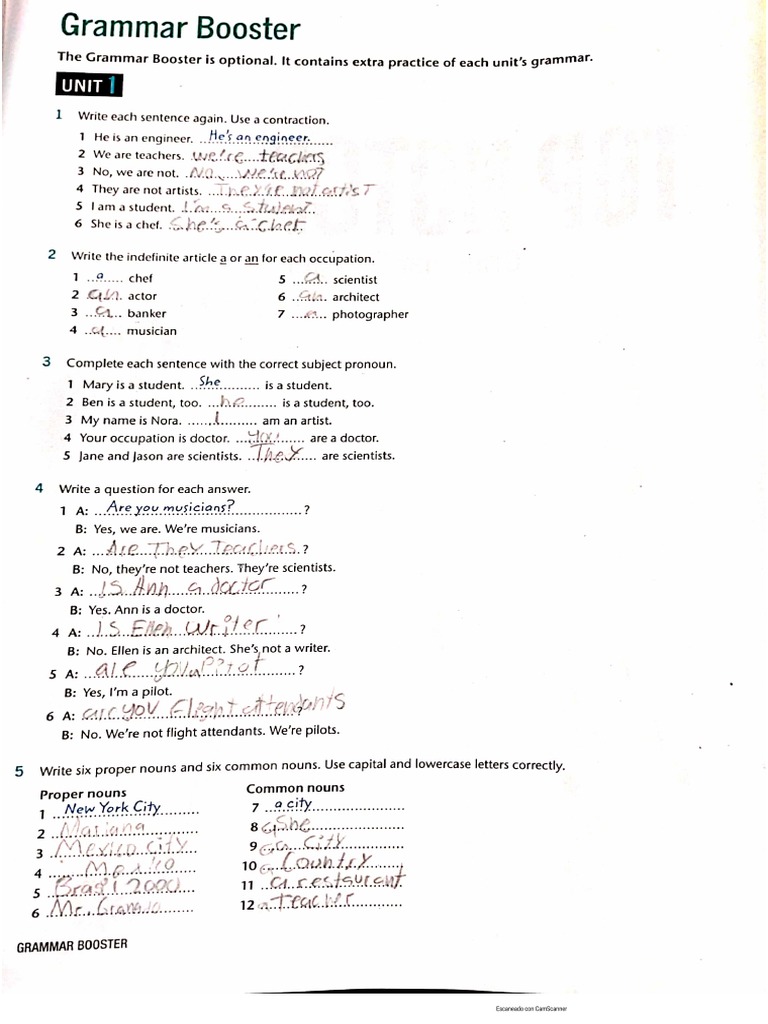 Grammar Booster
The Grammar Booster is optional. It contains extra practice of each unit's grammar.
UNIT 1
1 Write each sentence again. Use a contraction.
1 He is an engineer. He's an engineer.
2 We are teachers. we're teachers
3 No, we are not. No, we're not
4 They are not artists. They're not artist
5 I am a student. I'm a student.
6 She is a chef. She's a chef.
2 Write the indefinite article a or an for each occupation.
1 a chef 5 a scientist
2 an actor 6 an architect
3 a banker 7 a photographer
4 a musician
3 Complete each sentence with the correct subject pronoun.
1 Mary is a student. She is a student.
2 Ben is a student, too. he is a student, too.
3 My name is Nora. I am an artist.
4 Your occupation is doctor. you are a doctor.
5 Jane and Jason are scientists. They are scientists.
4 Write a question for each answer.
1 A: Are you musicians? ?
B: Yes, we are. We're musicians.
2 A: Are They Teachers ?
B: No, they're not teachers. They're scientists.
3 A: IS Ann a doctor ?
B: Yes. Ann is a doctor.
4 A: IS Ellen writer ?
B: No. Ellen is an architect. She's not a writer.
5 A: are you Pilot ?
B: Yes, I'm a pilot.
6 A: are you Flight attendants ?
B: No. We're not flight attendants. We're pilots.
5 Write six proper nouns and six common nouns. Use capital and lowercase letters correctly.
Proper nouns Common nouns
1 New York City 7 a city
2 Mariana 8 She
3 Mexico City 9 a City
4 Mexico 10 Country
5 2000 11 a restaurant
6 Mr. 12 a Teacher
GRAMMAR BOOSTER
Escaneado con CamScanner